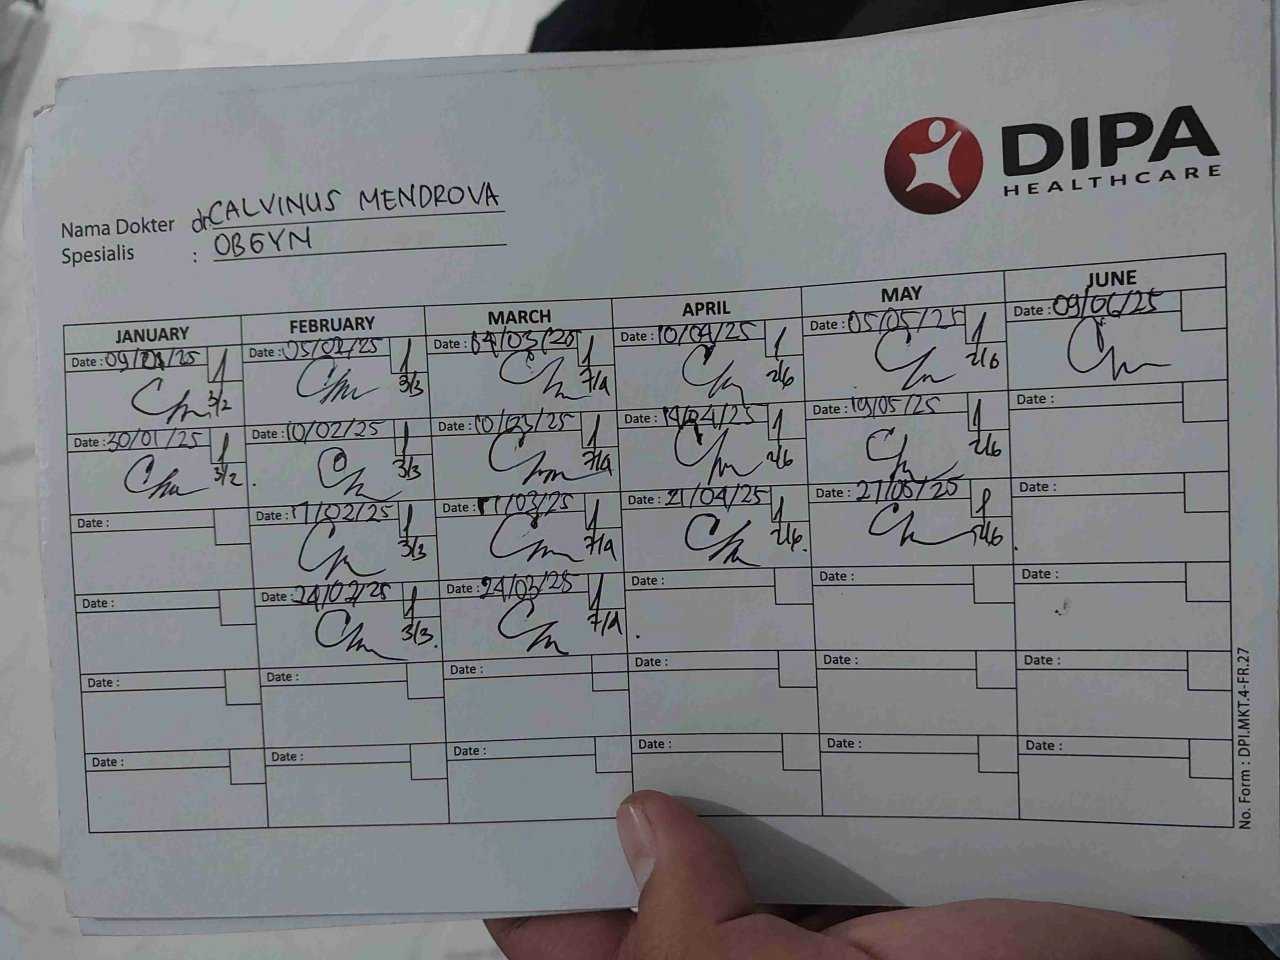 DIPA
HEALTHCARE
Nama Dokter dr. CALVINUS MENDROVA
Spesialis : OBGYN
JANUARY FEBRUARY MARCH APRIL MAY JUNE
Date : 09/01/25 Date : 05/02/25 Date : 04/03/25 Date : 10/04/25 Date : 05/05/25 Date : 09/06/25
3/2 3/3 7/4 2/6 2/6
Date : 30/01/25 Date : 10/02/25 Date : 10/03/25 Date : 14/04/25 Date : 19/05/25 Date :
3/2 3/3 7/4 2/6 2/6
Date : Date : 17/02/25 Date : 17/03/25 Date : 21/04/25 Date : 27/05/25 Date :
3/3 7/4 2/6 2/6
Date : Date : 24/02/25 Date : 24/03/25 Date : Date : Date :
3/3 7/4
Date : Date : Date : Date : Date : Date :
Date : Date : Date : Date : Date : Date :
No. Form : DPI.MKT.4-FR.27